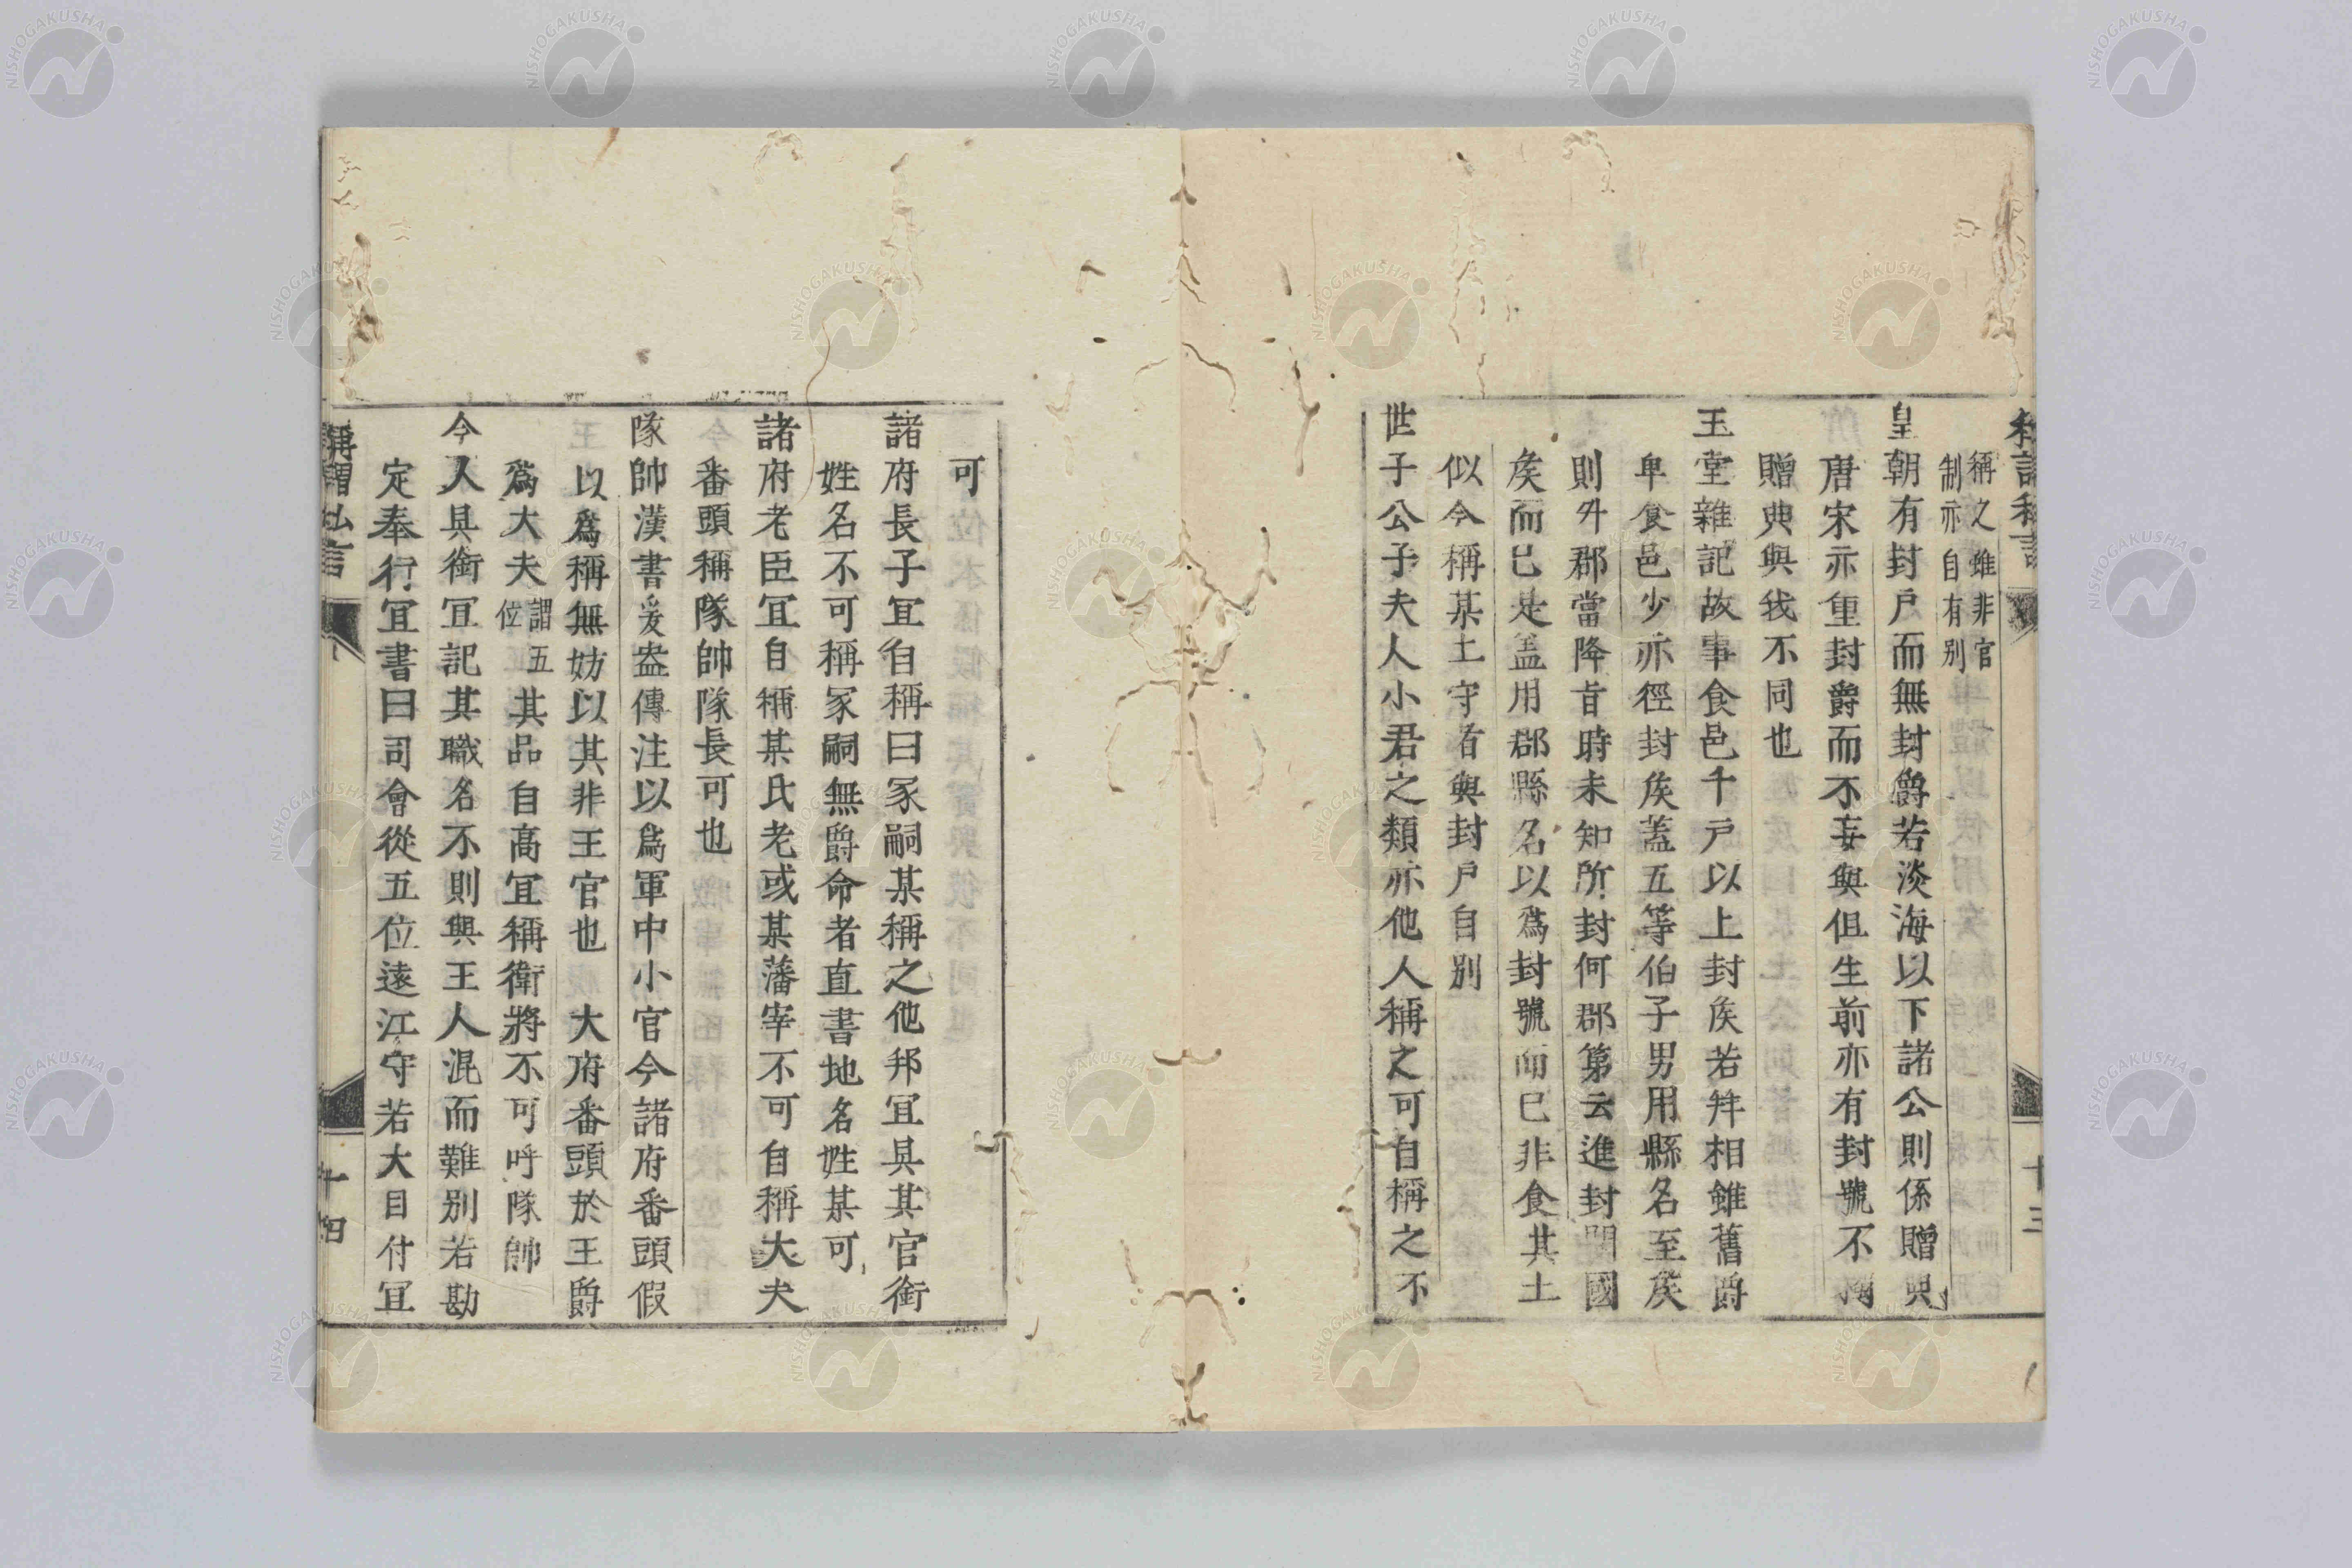 稱之雖非官
制亦自有別
皇朝有封戶而無封爵若淡海以下諸公則係贈典
唐宋亦重封爵而不妄與但生前亦有封號不
贈典與我不同也
玉堂雜記故事食邑千戶以上封矦若拜相雖舊爵
卑食邑少亦徑封矦蓋五等伯子男用縣名至矦
則升郡當降旨時未知所封何郡第云進封開國
矦而已是蓋用郡縣名以爲封號而已非食其土
似今稱某土守者與封戶自別
世子公子夫人小君之類亦他人稱之可自稱之不
十三
可
諸府長子宜自稱曰冢嗣某稱之他邦宜具其官銜
姓名不可稱冢嗣無爵命者直書地名姓某可
諸府老臣宜自稱某氏老或某藩宰不可自稱大夫
番頭稱隊帥隊長可也
隊帥漢書爰盎傳注以爲軍中小官今諸府番頭假
以爲稱無妨以其非王官也 大府番頭於王爵
爲大夫謂五位其品自高宜稱衛將不可呼隊帥
今人具銜宜記其職名不則與王人混而難別若勘
定奉行宜書曰司會從五位遠江守若大目付宜
稱謂私言
十四